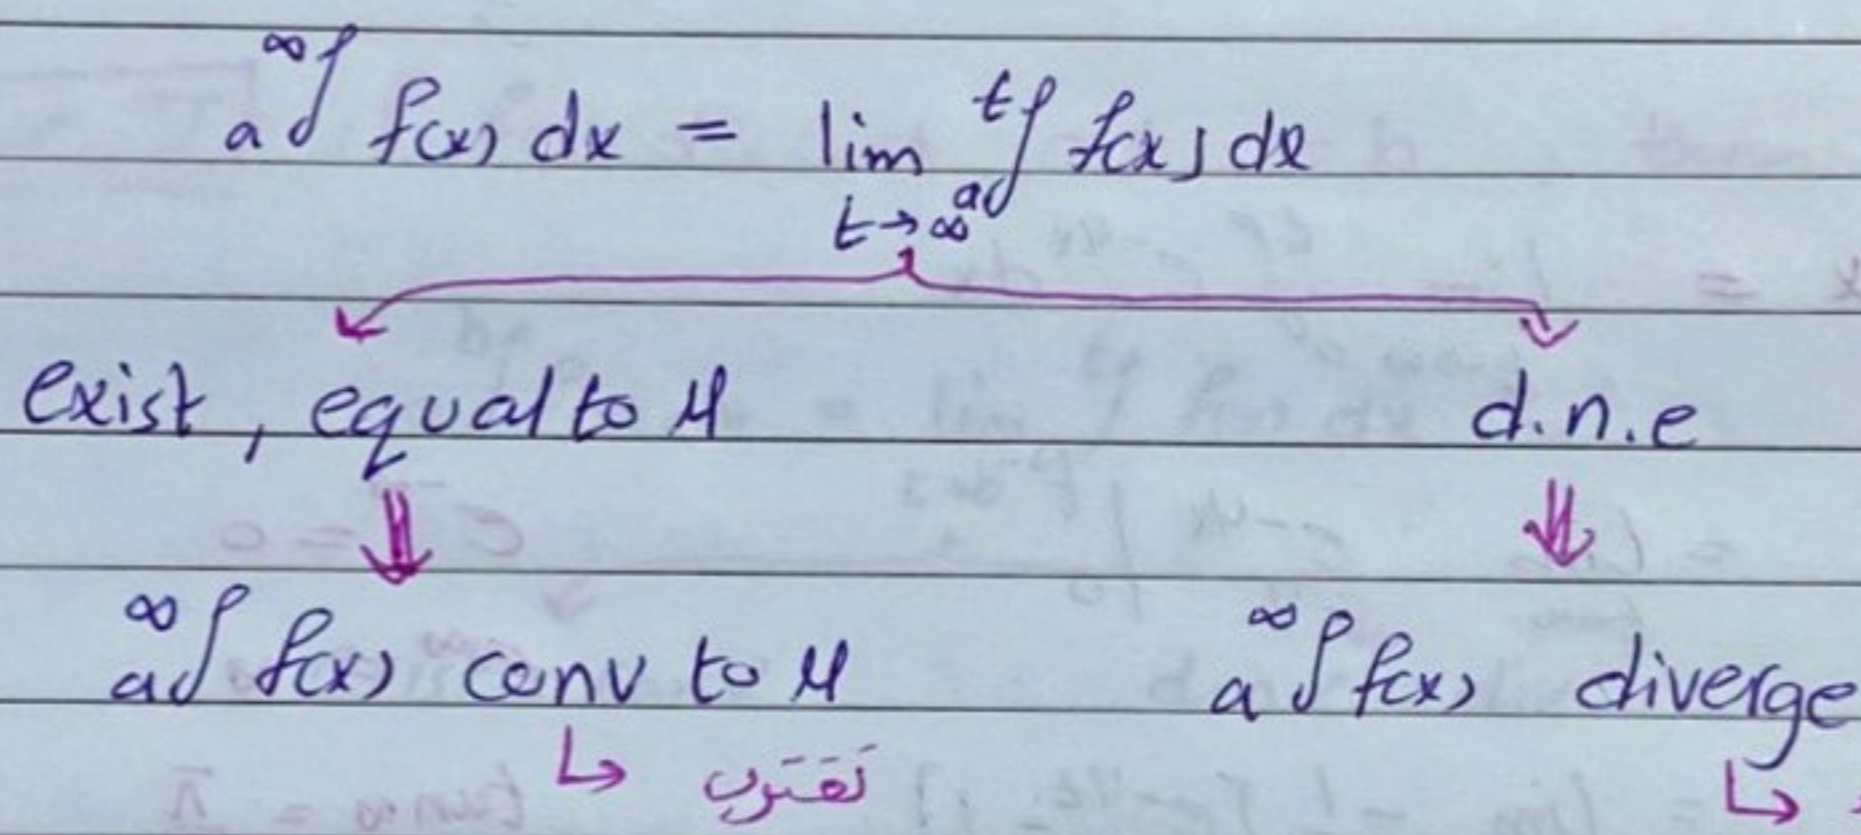 ∫_a^∞ f(x) dx = lim_{t→∞} ∫_a^t f(x) dx
exist, equal to M d.n.e
⇓ ⇓
∫_a^∞ f(x) conv to M ∫_a^∞ f(x) diverge
↳ تقترب ↳